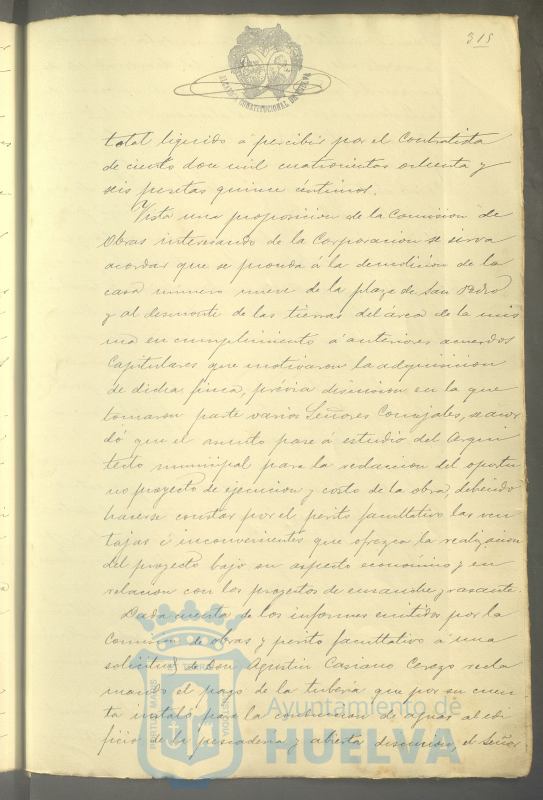 315
ALCALDIA CONSTITUCIONAL DE HUELVA
total líquido á percibir por el Contratista
de ciento doce mil cuatrocientas ochenta y
seis pesetas quince céntimos.
Vista una proposicion de la Comision de
Obras interesando de la Corporacion se sirva
acordar que se proceda á la demolicion de la
casa numero nueve de la plaza de San Pedro
y al desmonte de las tierras del área de la mis
ma en cumplimiento á anteriores acuerdos
Capitulares que motivaron la adquisicion
de dicha finca, prévia discusion en la que
tomaron parte varios Señores Concejales, se acor
dó que el asunto pase á estudio del Arqui
tecto municipal para la redaccion del oportu
no proyecto de ejecucion y costo de la obra, debiendo
hacerse constar por el perito facultativo las ven
tajas é inconvenientes que ofrezca la realizacion
del proyecto bajo su aspecto económico y en
relacion con los proyectos de ensanche y rasante.
Dada cuenta de los informes emitidos por la
Comision de obras y perito facultativo á una
solicitud de Don Agustin Casiano Cerezo recla
mando el pago de la tubería que por su cuen
ta instaló para la conduccion de aguas al edi
ficio de la pescadería y abierta discusion, el Señor
PORTUS MARIS
CUSTODIA
Ayuntamiento de
HUELVA